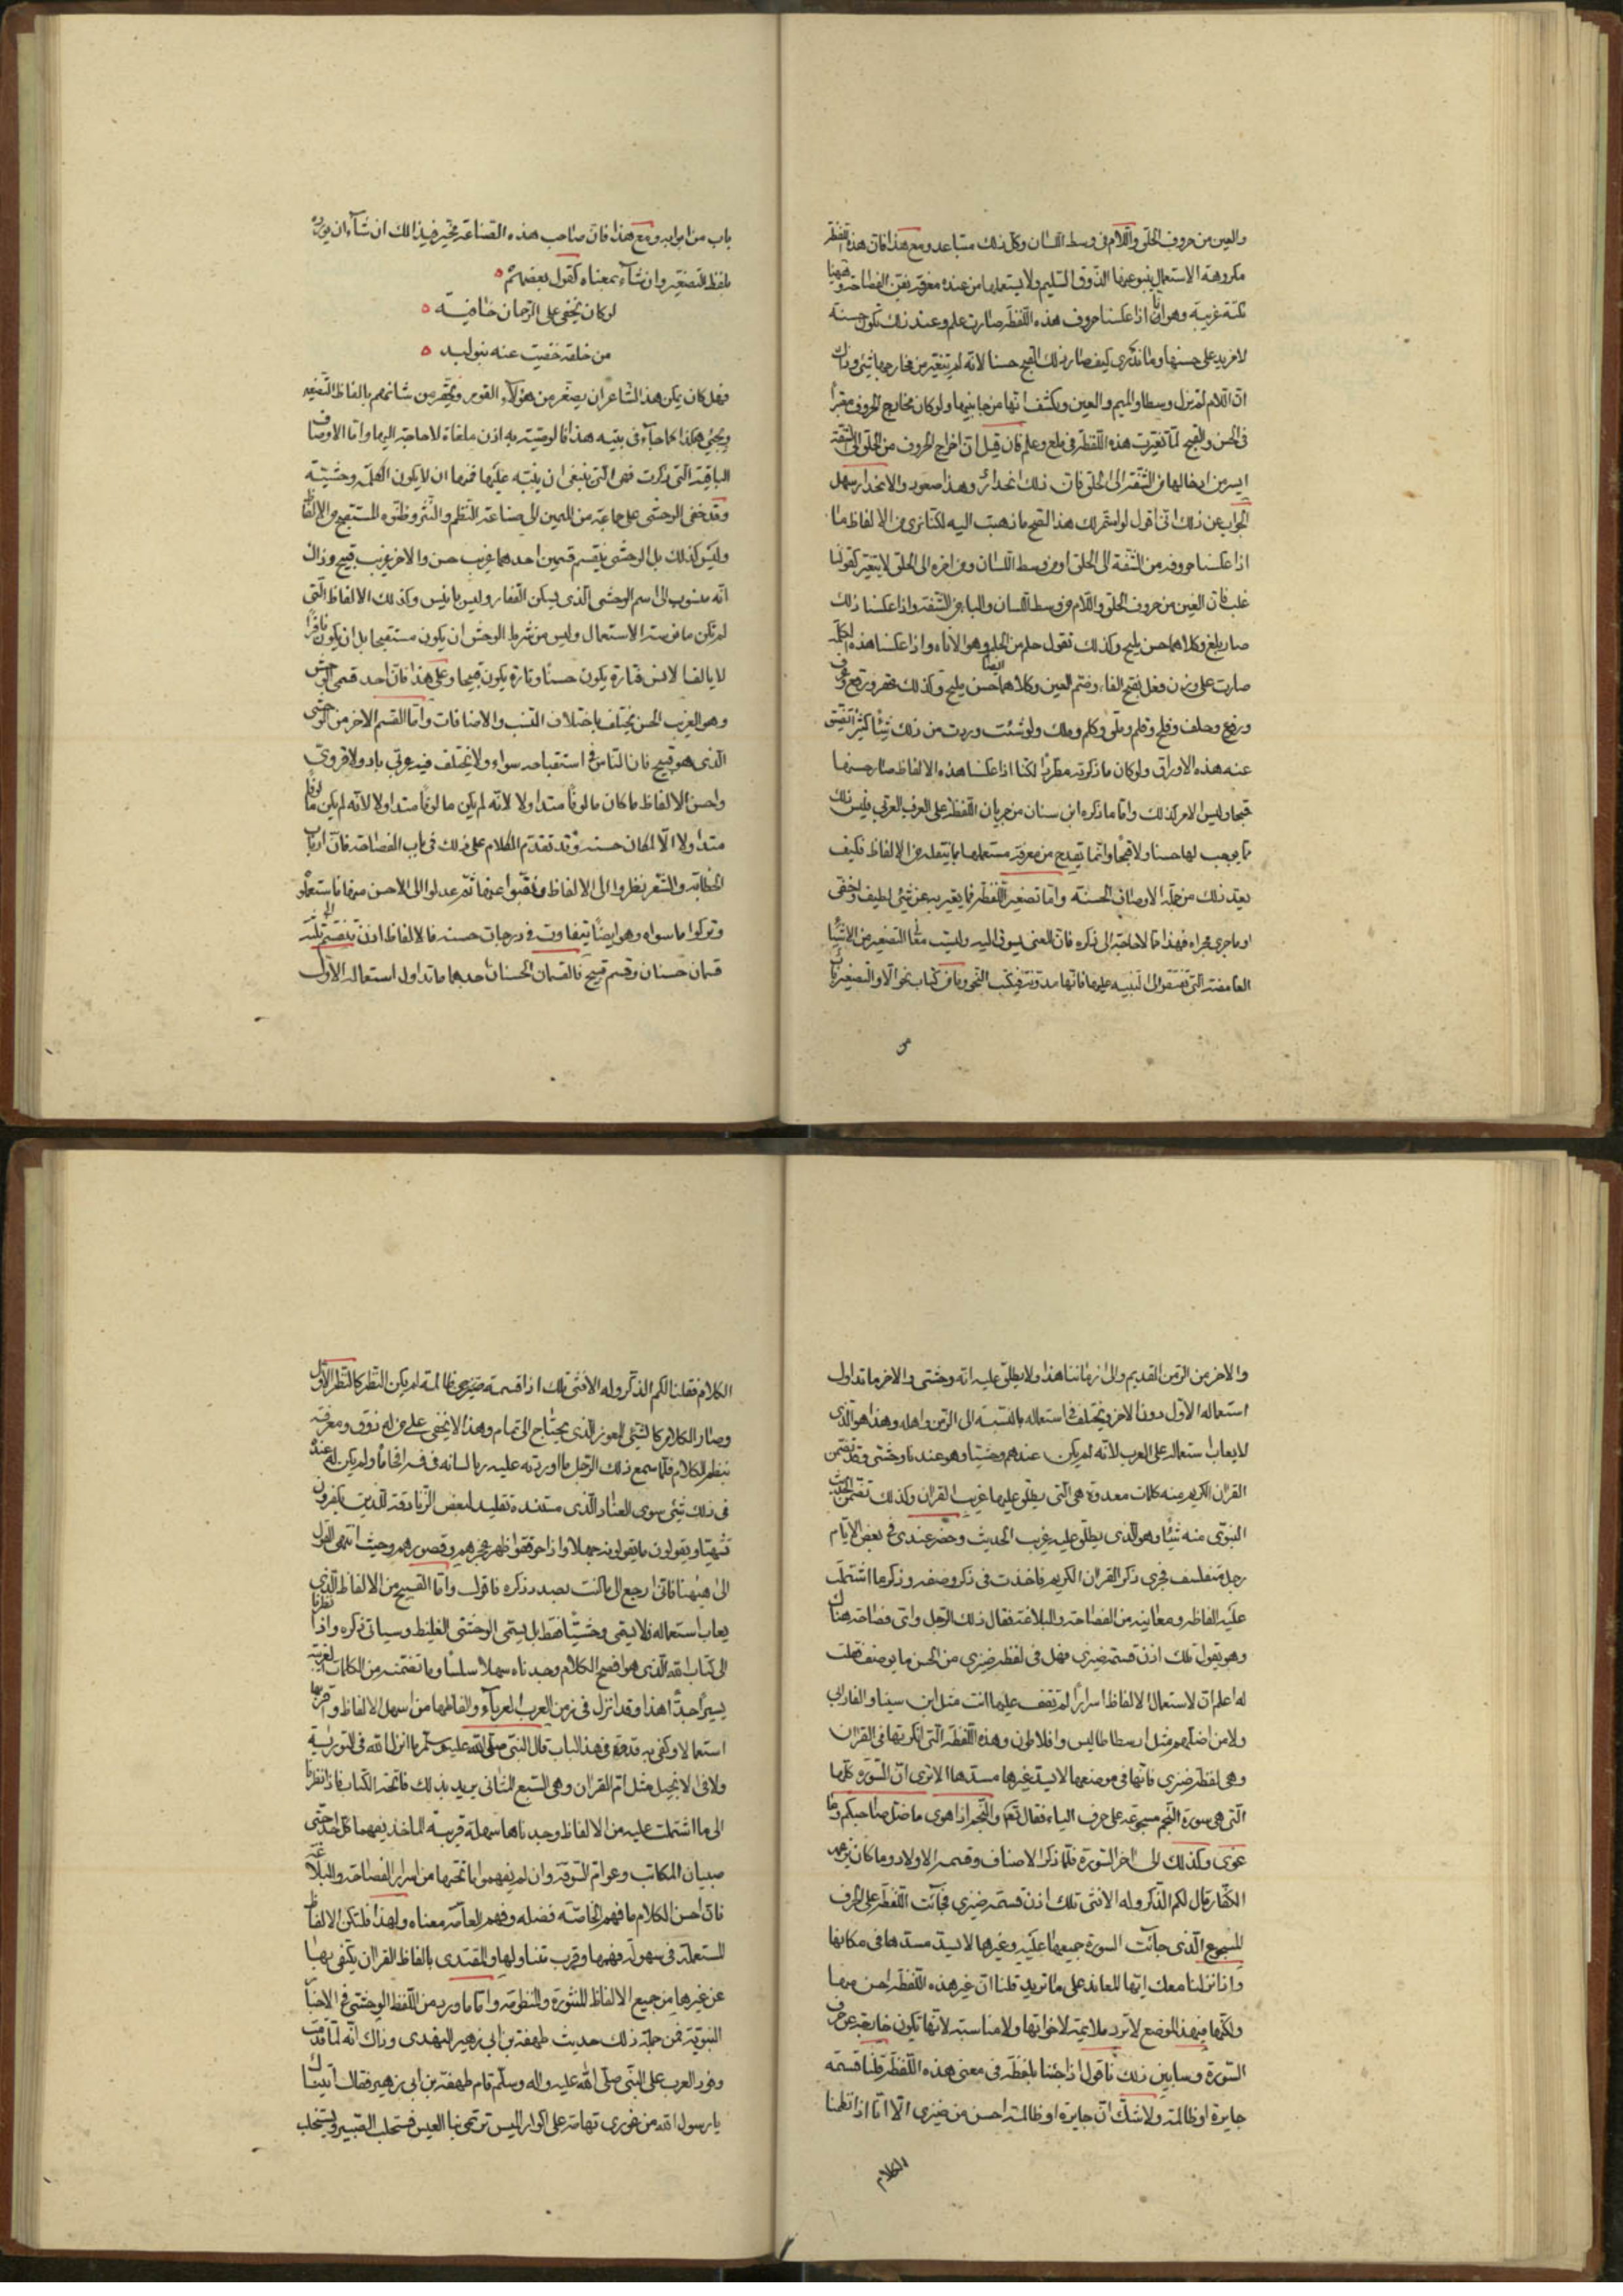 والعين من حروف الحلق واللام في وسط اللسان وكل ذلك متباعد ومع هذا فان هذه اللفظة
مكروهة الاستعمال ينبو عنها الذوق السليم ولا يستعملها من عنده معرفة بفن الفصاحة وههنا
نكتة غريبة وهو انا اذا عكسنا حروف هذه اللفظة صارت علم وعند ذلك تكون حسنة
لا مزيد على حسنها وما ندرى كيف صار ذلك القبح حسنا لانه لم يتغير من مخارجها شئ وذاك
ان اللام لم تزل وسطا والميم والعين يكتنفانها من جانبيها ولو كان مخارج الحروف معتبرا
فى الحسن والقبح لما تغيرت هذه اللفظة في ملع وعلم فان قيل ان اخراج الحروف من الحلق الى الشفة
ايسر من ادخالها من الشفة الى الحلق فان ذلك انحدار وهذا صعود والانحدار سهل
الجواب عن ذلك انى اقول لو استمر لك هذا لصح ما ذهبت اليه لكنا نرى من الالفاظ ما
اذا عكسنا حروفه من الشفة الى الحلق او من وسط اللسان او من اخره الى الحلق لا يتغير كقولنا
غلب فان الغين من حروف الحلق واللام من وسط اللسان والبا من الشفة واذا عكسنا ذلك
صار بلغ وكلاهما حسن مليح وكذلك تقول حلم من الحلم وهو الاناه واذا عكسنا هذه الكلمة
صارت ملح على وزن فعل بفتح الفاء وضم العين وكلاهما ايضا حسن مليح وكذلك عقر ورقع وعرف
وفرع وحلف وفلح وقلم وملق وكلم وملك ولو شئت لاوردت من ذلك شيئا كثيرا تضيق
عنه هذه الاوراق ولو كان ما ذكرته مطردا لكنا اذا عكسنا هذه الالفاظ صار حسنها
قبحا وليس الامر كذلك واما ما ذكره ابن سنان من جريان اللفظة على العرف العربي فليس ذلك
مما يوجب لها حسنا ولا قبحا وانما يقدح من معرفة مستعملها بما ينقله من الالفاظ فكيف
يعد ذلك من جملة الاوصاف الحسنة واما تصغير اللفظة فما يعبر به عن شئ لطيف او خفى
او ما جرى مجراه فهذا مما لا حاجة الى ذكره فان المعنى يسوق اليه وليست معانى التصغير من الاشياء
الغامضة التي تفتقر الى التنبيه عليها فانها مدونة في كتب النحو وما من كتاب نحو الا والتصغير باب
من
باب من ابوابه ومع هذا فان صاحب هذه الصناعة مخير في ذلك ان شاء ان يورده
بلفظ التصغير وان شاء بمعناه كقول بعضهم
لو كان يخفى على الرحمان خافية
من خلقه خفيت عنه بنو لبد
فهل كان يمكن هذا الشاعر ان يصغر من هؤلاء القوم ويحقر من شانهم بالفاظ التصغير
ويجئ هكذا كما جاء في بيته هذا فالوصية به اذن ملغاة لا حاجة اليها واما الاوصاف
الباقية التى ذكرت فهى التى ينبغى ان ينبه عليها فمنها ان لا يكون الكلمة وحشية
وقد خفى الوحشى على جماعة من المنتمين الى صناعة النظم والنثر وظنوه المستقبح من الالفاظ
وليس كذلك بل الوحشى ينقسم قسمين احدهما غريب حسن والاخر غريب قبيح وذاك
انه منسوب الى اسم الوحشى الذى يسكن القفار وليس بانيس وكذلك الالفاظ التى
لم تكن مانوسة الاستعمال وليس من شرط الوحش ان يكون مستقبحا بل ان يكون نافرا
لا يالف الانس فتارة يكون حسنا وتارة يكون قبيحا وعلى هذا فان احد قسمى الوحشى
وهو الغريب الحسن يختلف باختلاف النسب والاضافات واما القسم الاخر من الوحشى
الذى هو قبيح فان الناس في استقباحه سواء ولا يختلف فيه عربي باد ولا قروى
واحسن الالفاظ ما كان مالوفا متداولا لانه لم يكن مالوفا متداولا لانه لم يكن مالوفا
متداولا الا لمكان حسنه وقد تقدم الكلام على ذلك في باب الفصاحة فان ارباب
الخطابة والشعر نظروا الى الالفاظ ونقبوا عنها ثم عدلوا الى الاحسن منها فاستعملوه
وتركوا ما سواه وهو ايضا يتفاوت في درجات حسنه فالالفاظ اذن تنقسم الى ثلثة
قسمان حسنان وقسم قبيح فالقسمان الحسنان احدهما ما تداول استعماله الاول
والاخر من الزمن القديم والى زماننا هذا ولا يطلق عليه انه وحشى والاخر ما تداول
استعماله الاول دون الاخر ويختلف في استعماله بالنسبة الى الزمن واهله وهذا هو الذى
لا يعاب استعماله على العرب لانه لم يكن عندهم وحشيا وهو عندنا وحشى وقد تضمن
القران الكريم منه كلمات معدودة هى التى يطلق عليها غريب القران وكذلك تضمن الحديث
النبوى منه شيئا وهو الذى يطلق عليه غريب الحديث وحضر عندى في بعض الايام
رجل متفلسف فجرى ذكر القران الكريم فاخذت فى ذكر وصفه وذكر ما اشتملت
عليه الفاظه ومعانيه من الفصاحة والبلاغة فقال ذلك الرجل واى فصاحة هناك
وهو يقول تلك اذن قسمة ضيزى فهل فى لفظه ضيزى من الحسن ما يوصف فقلت
له اعلم ان لاستعمال الالفاظ اسرارا لم تقف عليها انت مثل ابن سينا والفارابي
ولا من اضلهم مثل ارسطاطاليس وافلاطون وهذه اللفظة التى انكرتها في القران
وهى لفظة ضيزى فانها فى موضعها لا يسد غيرها مسدها الا ترى ان السورة كلها
التى هى سورة النجم مسجوعة على حرف الياء فقال تعالى والنجم اذا هوى ما ضل صاحبكم وما
غوى وكذلك الى اخر السورة فلما ذكر الاصناف وقسمة الاولاد وما كان يزعمه
الكفار قال لكم الذكر وله الانثى تلك اذن قسمة ضيزى فجائت اللفظة على الحرف
المسجوع الذى جائت السورة جميعها عليه وغيرها لا يسد مسدها فى مكانها
واذا نزلنا معك ايها المعاند على ما تريد قلنا ان غير هذه اللفظة احسن منها
ولكنها في هذا الموضع لا ترد ملايمة لاخواتها ولا مناسبة لانها تكون خارجة عن حرف
السورة وسابين ذلك فاقول اذا جئنا بلفظة فى معنى هذه اللفظة قلنا قسمة
جايرة او ظالمة ولا شك ان جايرة او ظالمة احسن من ضيزى الا انا اذا نظمنا
الكلام
الكلام فقلنا لكم الذكر وله الانثى تلك اذا قسمة ظالمة لم يكن النظم كالنظم الاول
وصار الكلام كالشئ المعوز الذى يحتاج الى تمام وهذا لا يخفى على من له ذوق ومعرفة
بنظم الكلام فلما سمع ذلك الرجل ما اوردته عليه ربا لسانه في فمه افحاما ولم يكن عنده
فى ذلك شئ سوى العناد الذى مستنده تقليد لبعض الزنادقة الذين يكفرون
تشهيا ويقولون ما يقولونه جهلا واذا حوققوا ظهر عجزهم وقصورهم وحيث انتهى القول
الى ههنا فانى ارجع الى ما كنت بصدد ذكره فاقول واما القبيح من الالفاظ الذى
يعاب استعماله فلا يسمى وحشيا فقط بل يسمى الوحشى الغليظ وسياتى ذكره واذا نظرنا
الى كتاب الله الذى هو افصح الكلام وجدناه سهلا سلسا وما تضمنه من الكلمات الغريبة
يسير جدا هذا وقد انزل فى زمن العرب العرباء والفاظها من اسهل الالفاظ واقربها
استعمالا وكفى به قدوة في هذا الباب قال النبي صلى الله عليه وسلم ما انزل الله في التورية
ولا في الانجيل مثل ام القران وهى السبع المثانى يريد بذلك فاتحة الكتاب فاذا نظرنا
الى ما اشتملت عليه من الالفاظ وجدناها سهلة قريبة الماخذ يفهمها كل احد حتى
صبيان المكاتب وعوام السوقة وان لم يفهموا ما تحتها من اسرار الفصاحة والبلاغة
فان احسن الكلام ما فهم الخاصة فضله وفهم العامة معناه وهكذا فلتكن الالفاظ
المستعملة فى سهولة فهمها وقرب تناولها والمقتدى بالفاظ القران يكتفى بها
عن غيرها من جميع الالفاظ المنثورة والمنظومة واما ما ورد من اللفظ الوحشى في الاخبار
النبوية فمن جملة ذلك حديث طهفة بن ابى زهير النهدى وذاك انه لما قدمت
وفود العرب على النبى صلى الله عليه واله وسلم قام طهفة بن ابى زهير فقال اتيناك
يا رسول الله من غورى تهامة على اكوار الميس ترتمى بنا العيس نستحلب الصبير ونستخلب